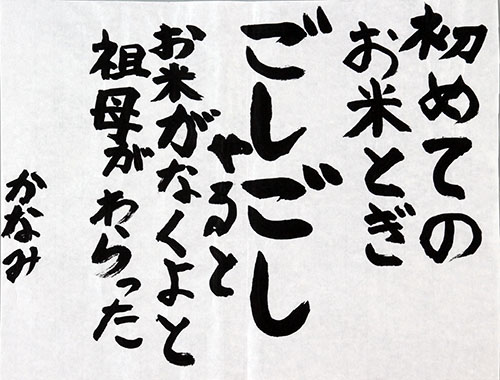 初めての
お米とぎ
ごしごし
やると
お米がなくよと
祖母がわらった
かなみ